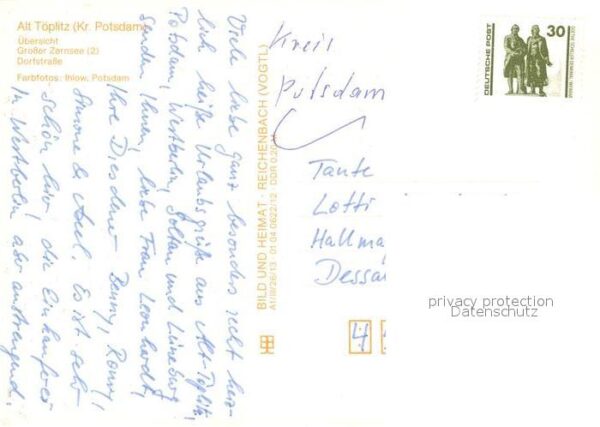 Alt Töplitz (Kr. Potsdam)
Übersicht
Großer Zernsee (2)
Dorfstraße
Farbfotos: Ihlow, Potsdam
Viele liebe ganz besonders recht herz-
lich heiße Urlaubsgrüße aus Alt-Töplitz,
Potsdam, Westberlin, Soltau und Lüneburg
senden Ihnen, liebe Frau Leonhardt,
Ihre Dresdener Ronny,
Simone & Axel. Es ist sehr
schön hier, die Einkauferei
in Westberlin aber anstrengend.
BILD UND HEIMAT · REICHENBACH (VOGTL)
A1/III/26/13 01 04 0622/12 DDR 0,20 M
Kreis
Potsdam
DEUTSCHE POST
30
Tante
Lotti
Hallma
Dessau
4
privacy protection
Datenschutz